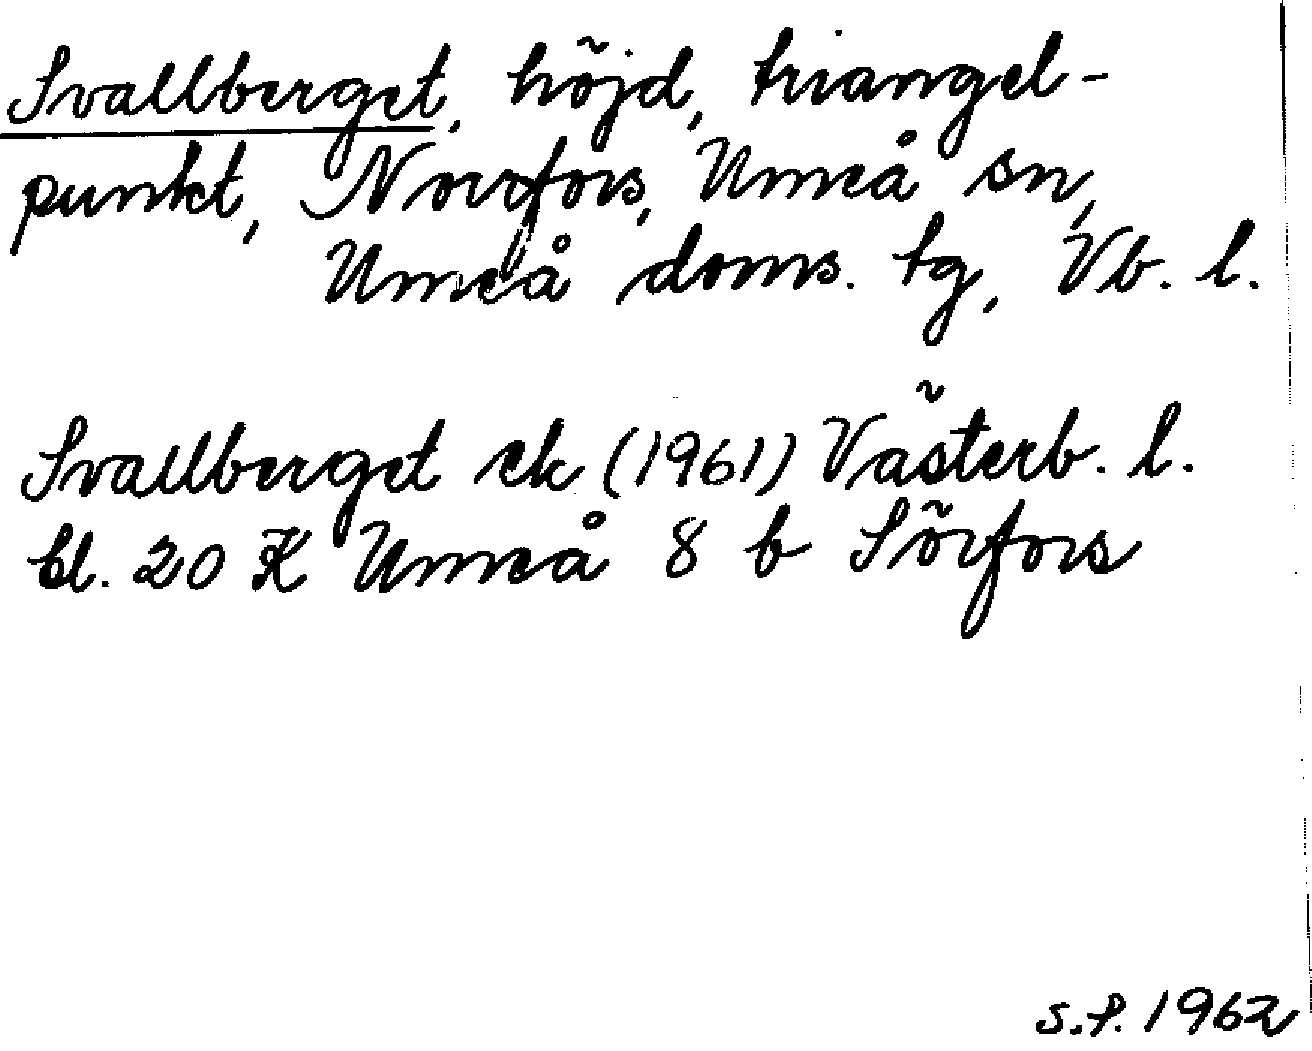 Svallberget, höjd, triangel-
punkt, Norrfors, Umeå sn,
Umeå doms. tg, Vb. l.
Svallberget ek (1961) Västerb. l.
bl. 20 K Umeå 8 b Sörfors
S.P. 1962